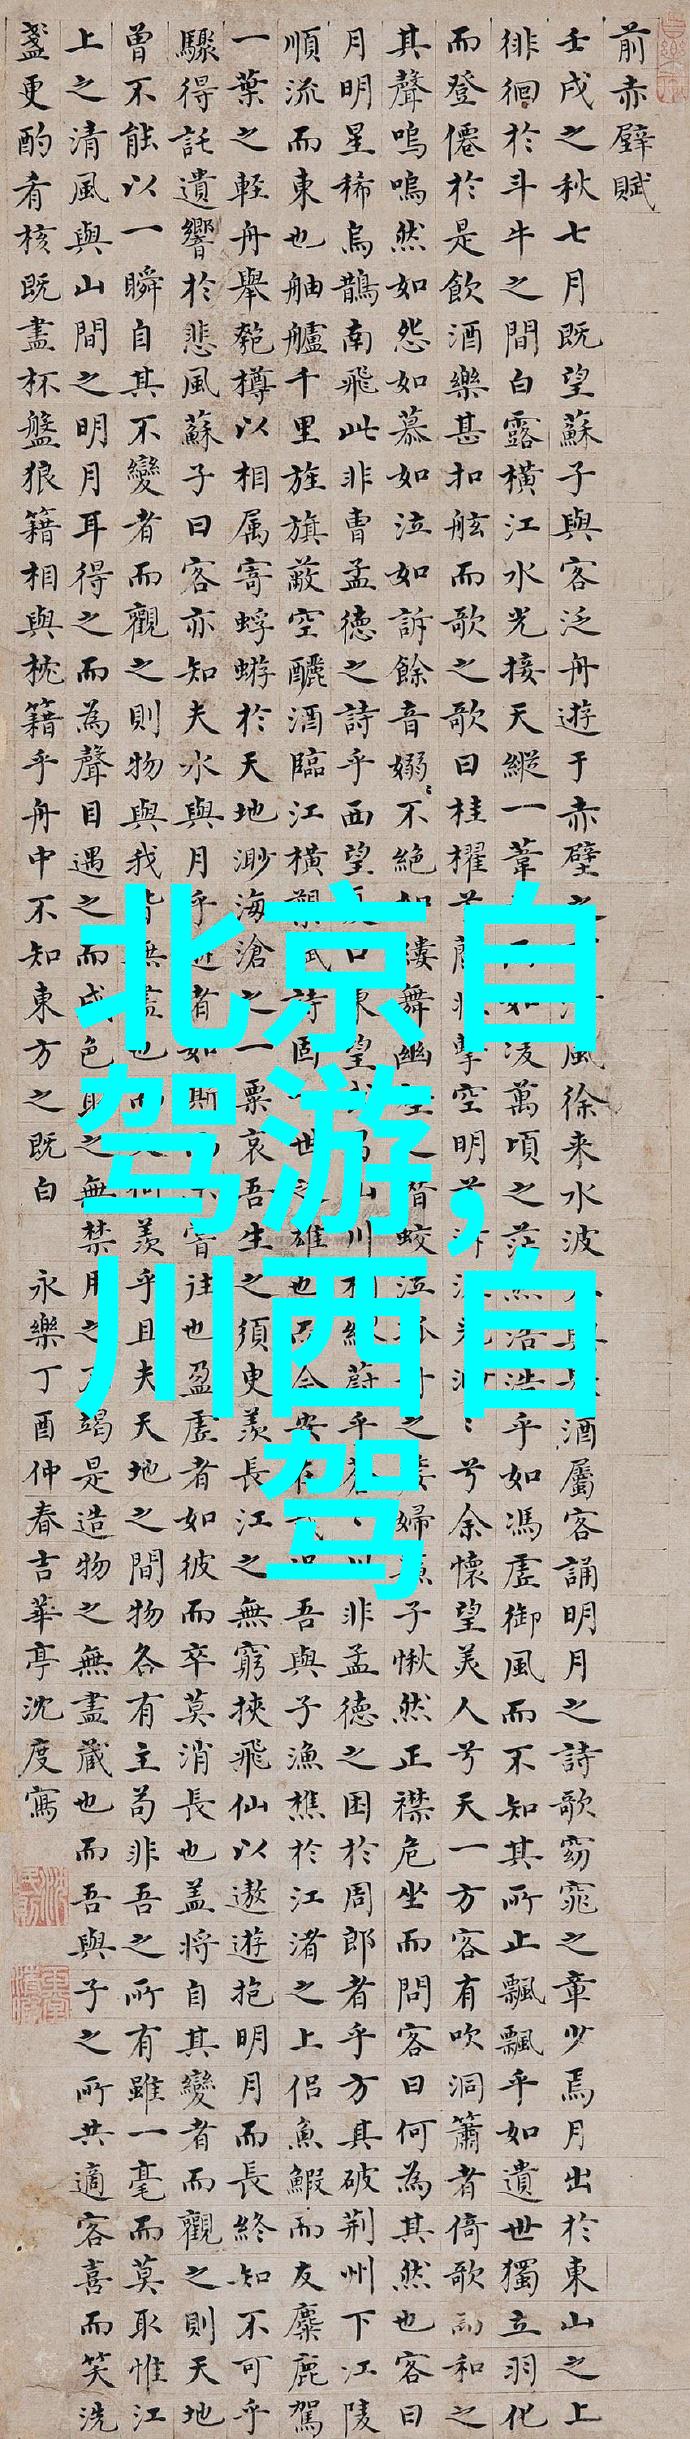 前赤壁賦
壬戌之秋七月既望蘇子與客泛舟遊于赤壁之清風徐来水波酒屬客誦明月之詩歌窈窕之章少焉月出於東山之上
徘徊於斗牛之間白露橫江水光接天縱一葦如凌萬頃之茫然浩浩乎如馮虛御風而不知其所止飄飄乎如遺世獨立羽化
而登僊於是飲酒樂甚扣舷而歌之歌曰桂櫂兮蘭槳擊空明兮泝流光渺〻兮余懷望美人兮天一方客有吹洞簫者倚歌而和之
其聲嗚嗚然如怨如慕如泣如訴餘音嫋〻不絕如縷舞幽壑之潛蛟泣孤舟之嫠婦蘇子愀然正襟危坐而問客曰何為其然也客曰
月明星稀烏鵲南飛此非曹孟德之詩乎西望夏口東望武昌山川相繆蔚乎蒼〻此非孟德之困於周郎者乎方其破荊州下江陵
順流而東也舳艫千里旌旗蔽空釃酒臨江橫槊賦詩固一世之雄也而今安在哉況吾與子漁樵於江渚之上侶魚鰕而友麋鹿駕
一葉之輕舟舉匏樽以相属寄蜉蝣於天地渺海滄之一粟哀吾生之須臾羨長江之無窮挾飛仙以遨遊抱明月而長終知不可乎
驟得託遺響於悲風蘇子曰客亦知夫水與月乎逝者如斯而未甞往也盈虛者如彼而卒莫消長也蓋將自其變者而觀之則天地
曾不能以一瞬自其不變者而觀之則物與我皆無盡也而又何羨乎且夫天地之間物各有主苟非吾之所有雖一毫而莫取惟江
上之清風與山間之明月耳得之而為聲目遇之而成色取之無禁用之不竭是造物之無盡藏也而吾與子之所共適客喜而笑洗
盞更酌肴核既盡杯盤狼籍相與枕籍乎舟中不知東方之既白 永樂丁酉仲春吉華亭沈度寫
北京自
驾游,
川西自
驾